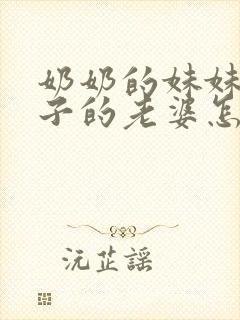 奶奶的妹妹
子的老婆怎
沅芷謡